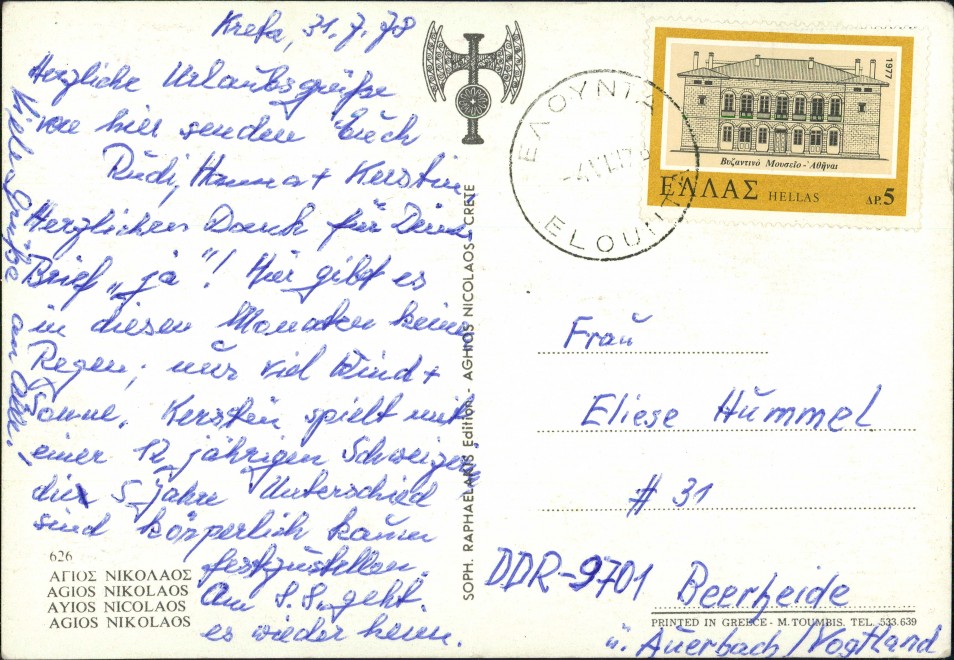 Kreta, 31.7.78
Herzliche Urlaubsgrüße
von hier senden Euch
Rudi, Hanna + Kerstin
Herzlichen Dank für Deinen
Brief „ja"! Hier gibt es
in diesen Monaten keinen
Regen; nur viel Wind +
Sonne. Kerstin spielt mit
einer 12 jährigen Schweizerin
die 5 Jahre Unterschied
sind körperlich kaum
festzustellen.
Am 5.8. geht
es wieder heim.
Viele Grüße an alle!
626
ΑΓΙΟΣ ΝΙΚΟΛΑΟΣ
AGIOS NIKOLAOS
AYIOS NICOLAOS
AGIOS NIKOLAOS
SOPH. RAPHAELAKIS Edition - AGHIOS NICOLAOS - CRETE
ΕΛΟΥΝΤΑ
ELOUNTA
1977
Βυζαντινό Μουσείο - Ἀθῆναι
ΕΛΛΑΣ HELLAS ΔΡ. 5
Frau
Eliese Hummel
# 31
DDR-9701 Beerheide
PRINTED IN GREECE - M. TOUMBIS. TEL. 533.639
ü. Auerbach/Vogtland